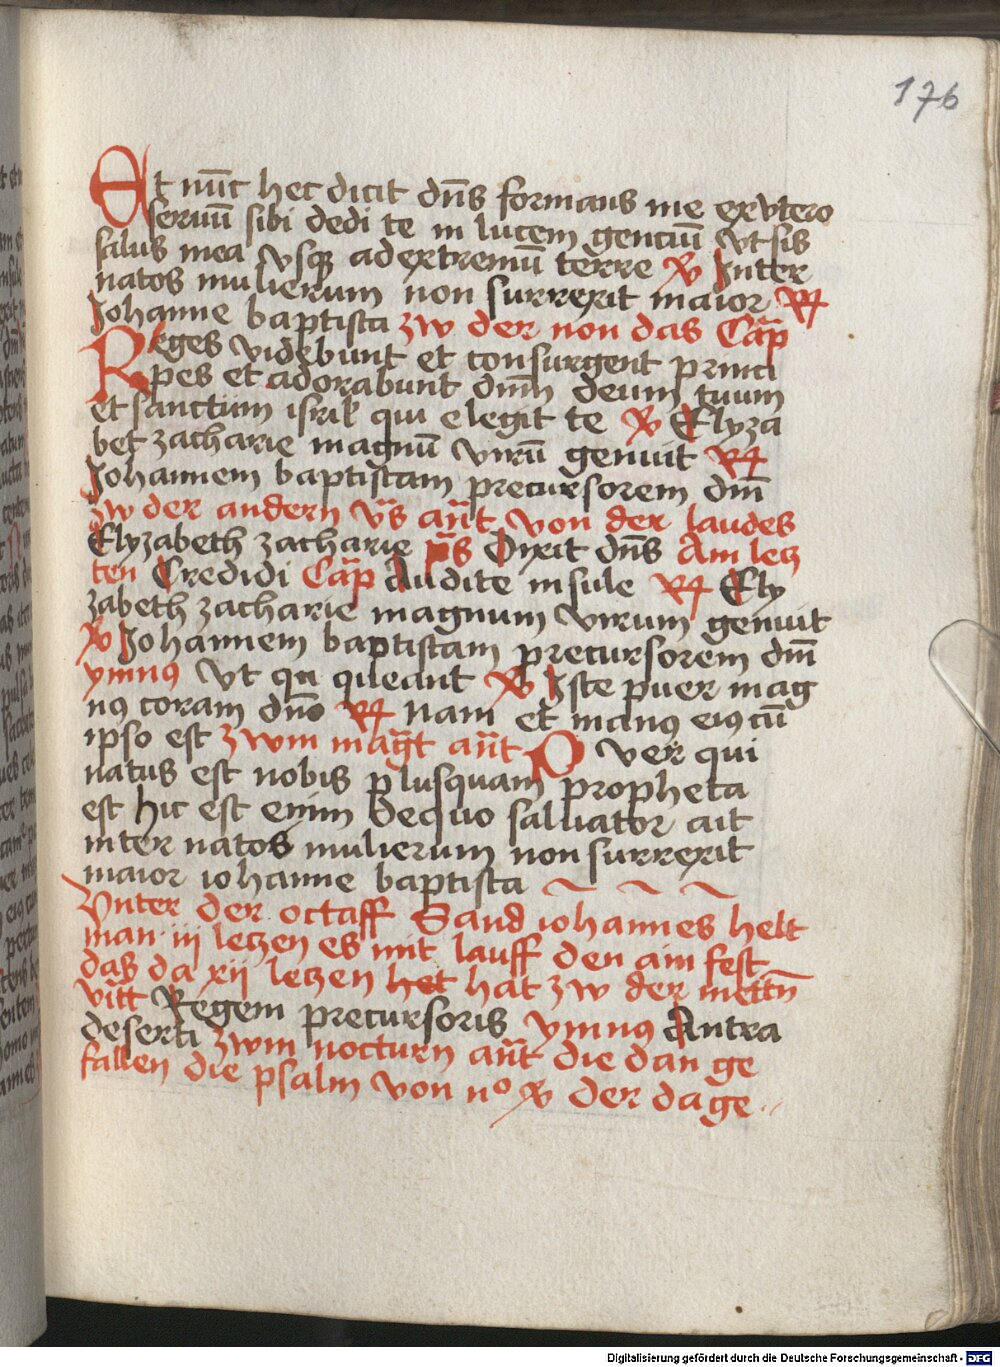 176
Et nūc hec dicit dn̄s formans me exvtero
seruū sibi dedi te in lucem genciū vt sis
salus mea vsqꝫ ad extremū terre ℣ Inter
natos mulierum non surrexit maior ℟
Johanne baptista zw der non das Cap̄
Reges videbunt et consurgent princi
pes et adorabunt dn̄m deum tuum
et sanctum isrl̄ qui elegit te ℣ Elyza
bet zacharie magnū virū genuit ℟
Johannem baptistam precursorem dn̄i
zw der andern vs̄ an̄t von der laudes
Elyzabeth zacharie ps̄ Dixit dn̄s Am lecz
ten Credidi Cap̄ Audite insule ℟ Ely
zabeth zacharie magnum virum genuit
℣ Johannem baptistam precursorem dn̄i
ymnꝰ Vt qn queant ℣ Iste puer mag
nꝰ coram dn̄o ℟ Nam et manꝰ eiꝰ cū
ipso est zwm maḡt an̄t Pver qui
natus est nobis plusquam propheta
est hic est enim de quo saluator ait
inter natos mulierum non surrexit
maior iohanne baptista
Vnter der octaff Sand iohannes helt
man iij leczen es mit lauff den ain fest
das da xij leczen het hat zw der mettn̄
vit̄t Regem precursoris ymnꝰ Antra
deserti zwm nocturn an̄t die dan ge
fallen die psalm von nᵒ ℣ der da ge
Digitalisierung gefördert durch die Deutsche Forschungsgemeinschaft - DFG